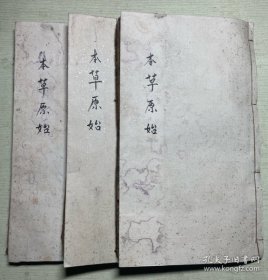 本草原始
本草原始
本草原始
孔夫子旧书网